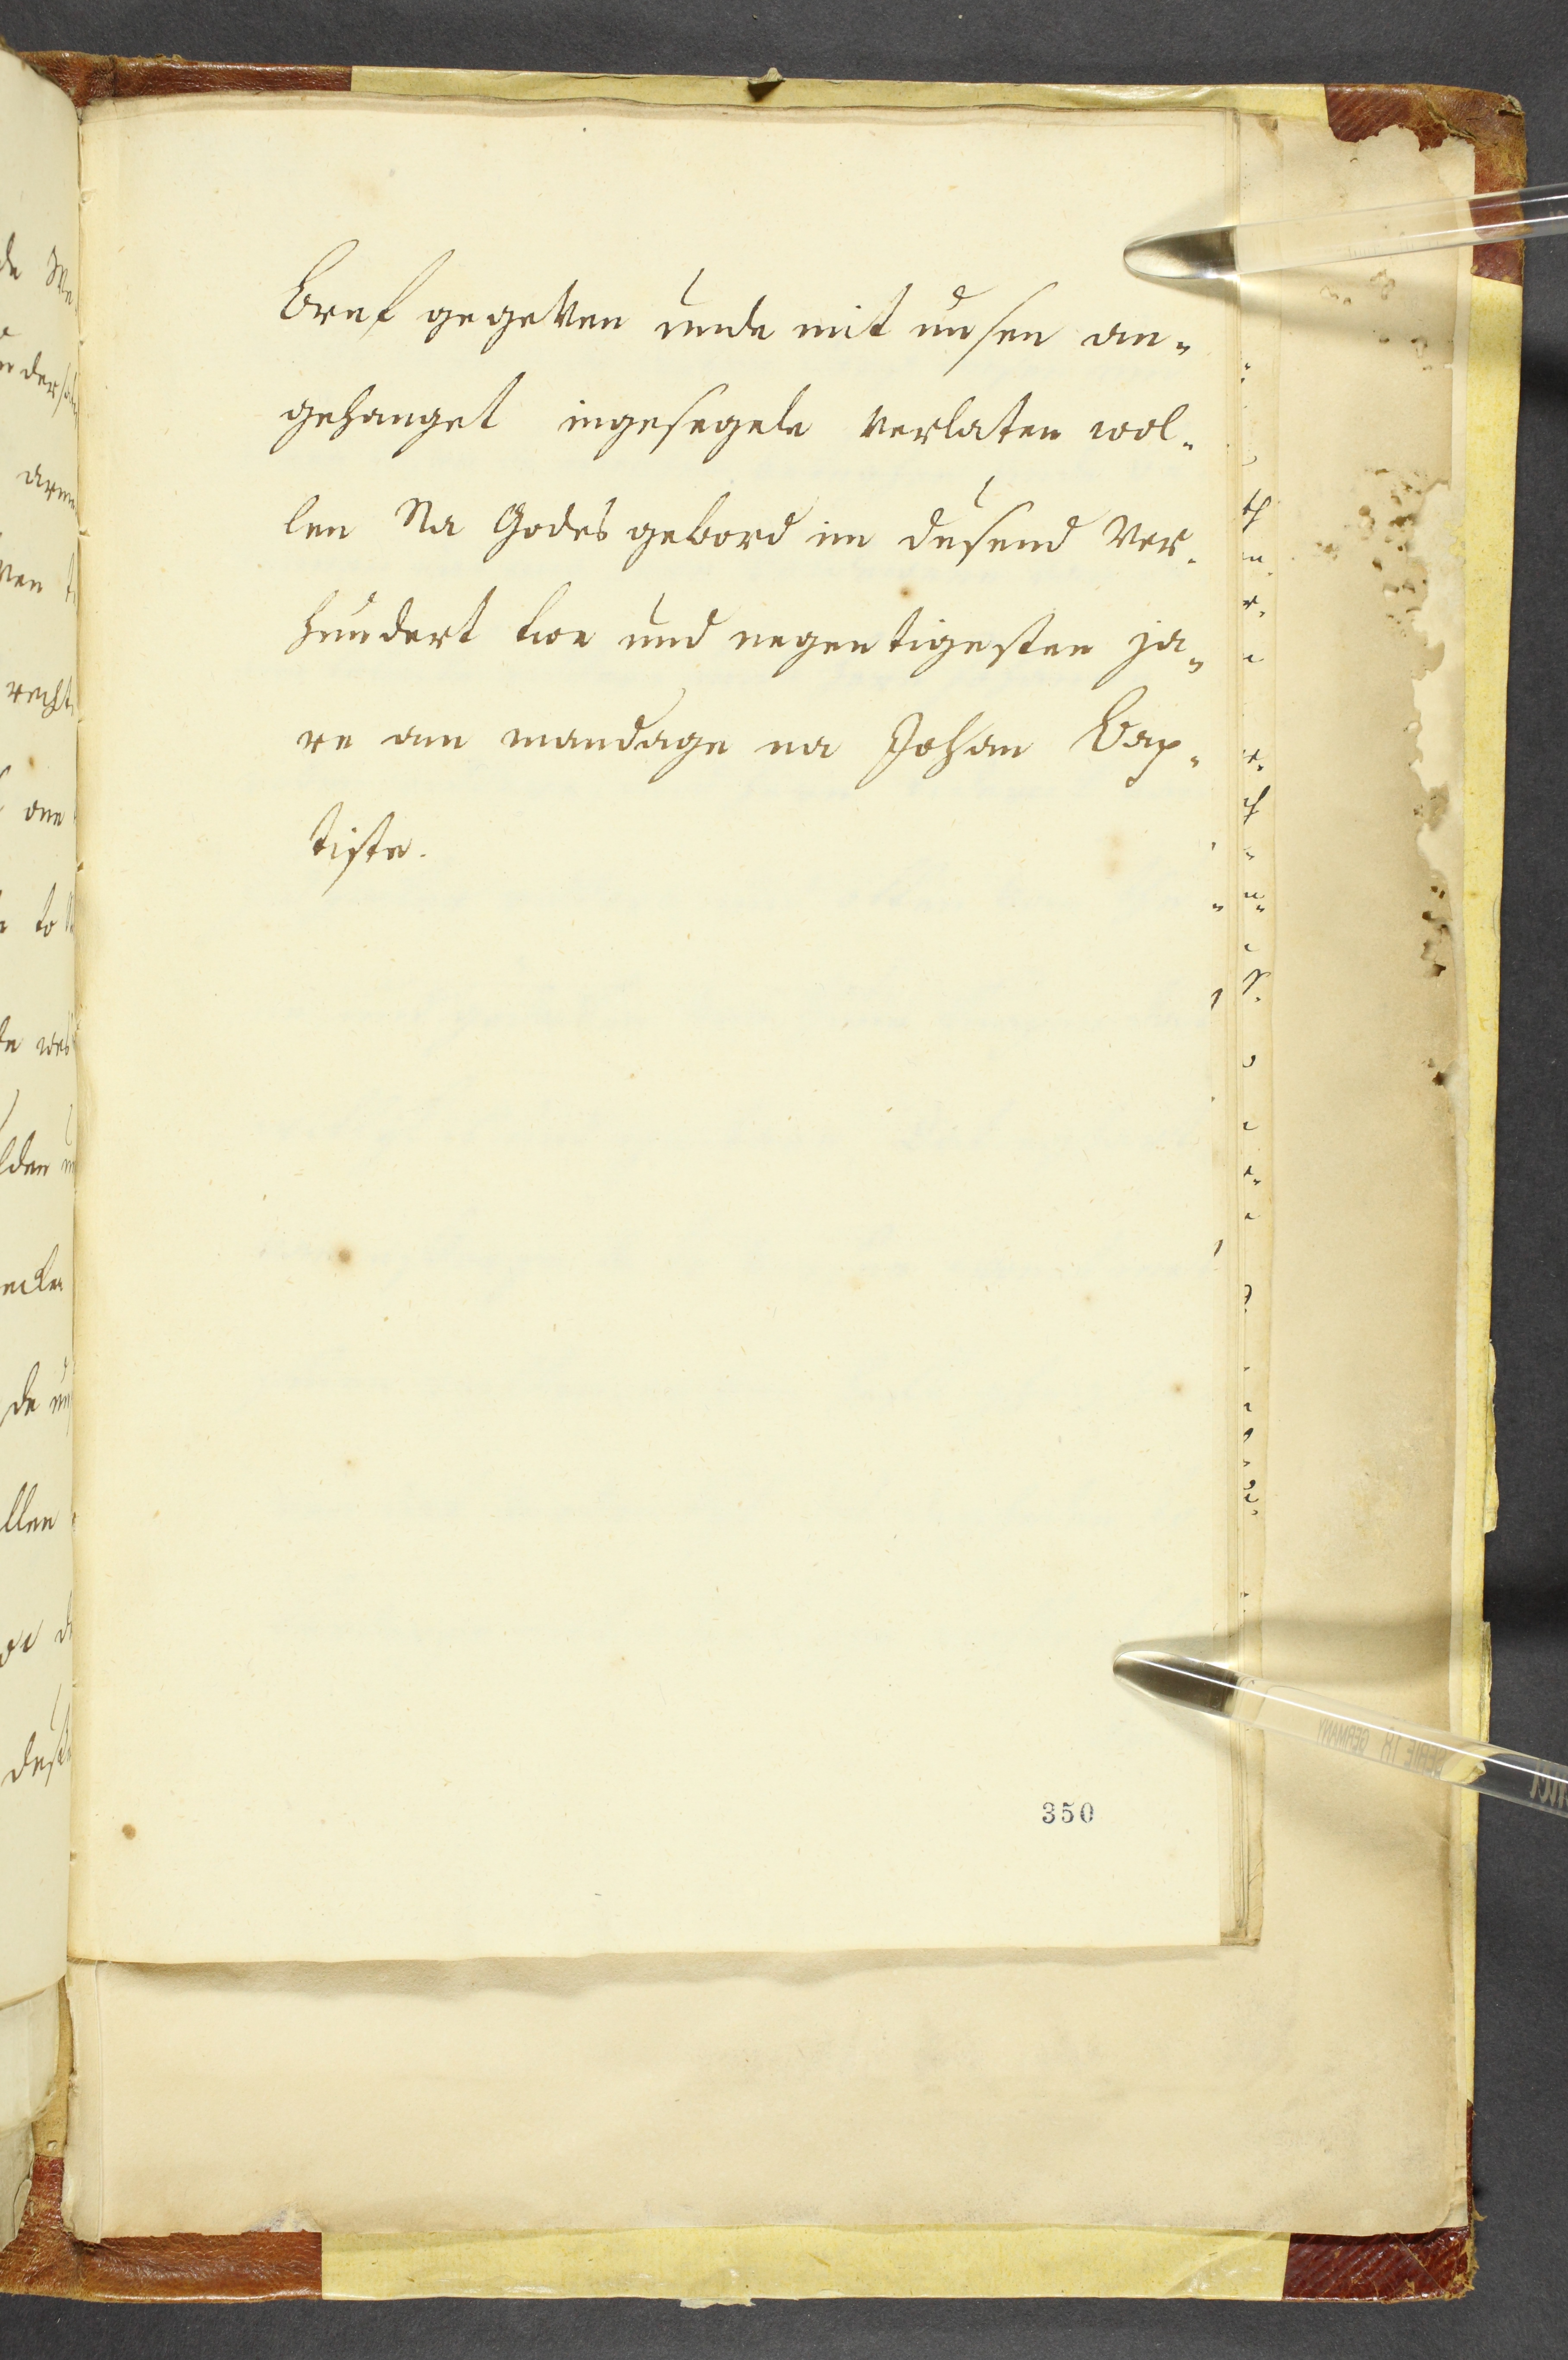 bref gegeven unde mit unsen an-
gehanget ingesegele verlaten wol-
len Na Godes gebord im dusend ver-
hundert twe und negentigesten ja-
re am mandage na Johan Bap-
tiste.
350